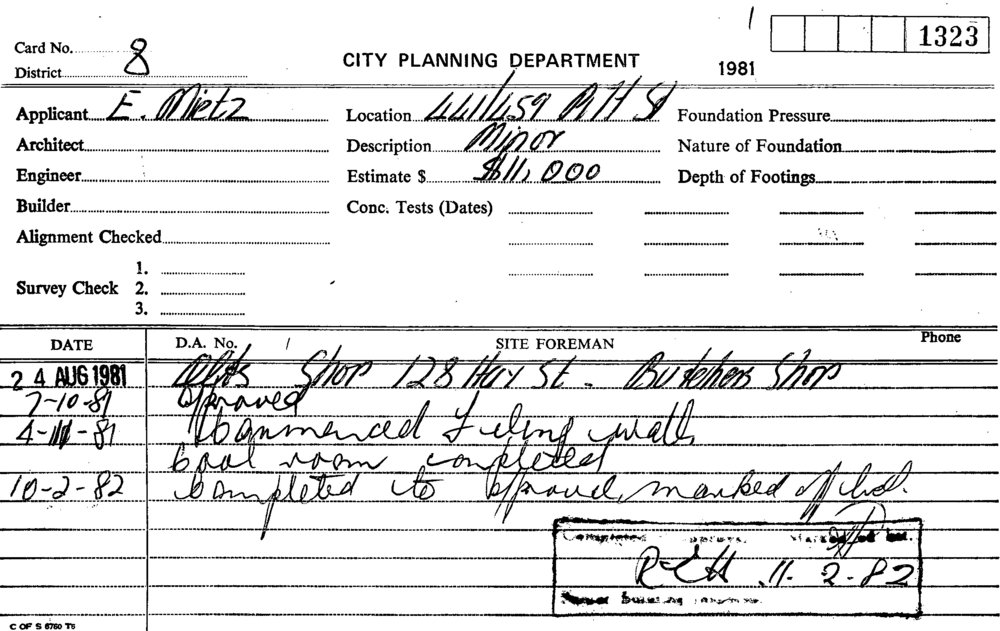 1323
Card No. 8
District
CITY PLANNING DEPARTMENT
1981
Applicant E. Mietz
Location 441/459 P, H St
Foundation Pressure
Architect
Description Minor
Nature of Foundation
Engineer
Estimate $ $11,000
Depth of Footings
Builder
Conc. Tests (Dates)
Alignment Checked
Survey Check 1.
2.
3.
DATE
D.A. No.
SITE FOREMAN
Phone
24 AUG 1981 Alts Shop 128 Hay St - Butchers Shop
7-10-81 Approved
4-11-81 Commenced tileing walls
Cool room completed
10-2-82 Completed to approval, marked off
Completed
11-2-82
building
C OF S 6760 T5